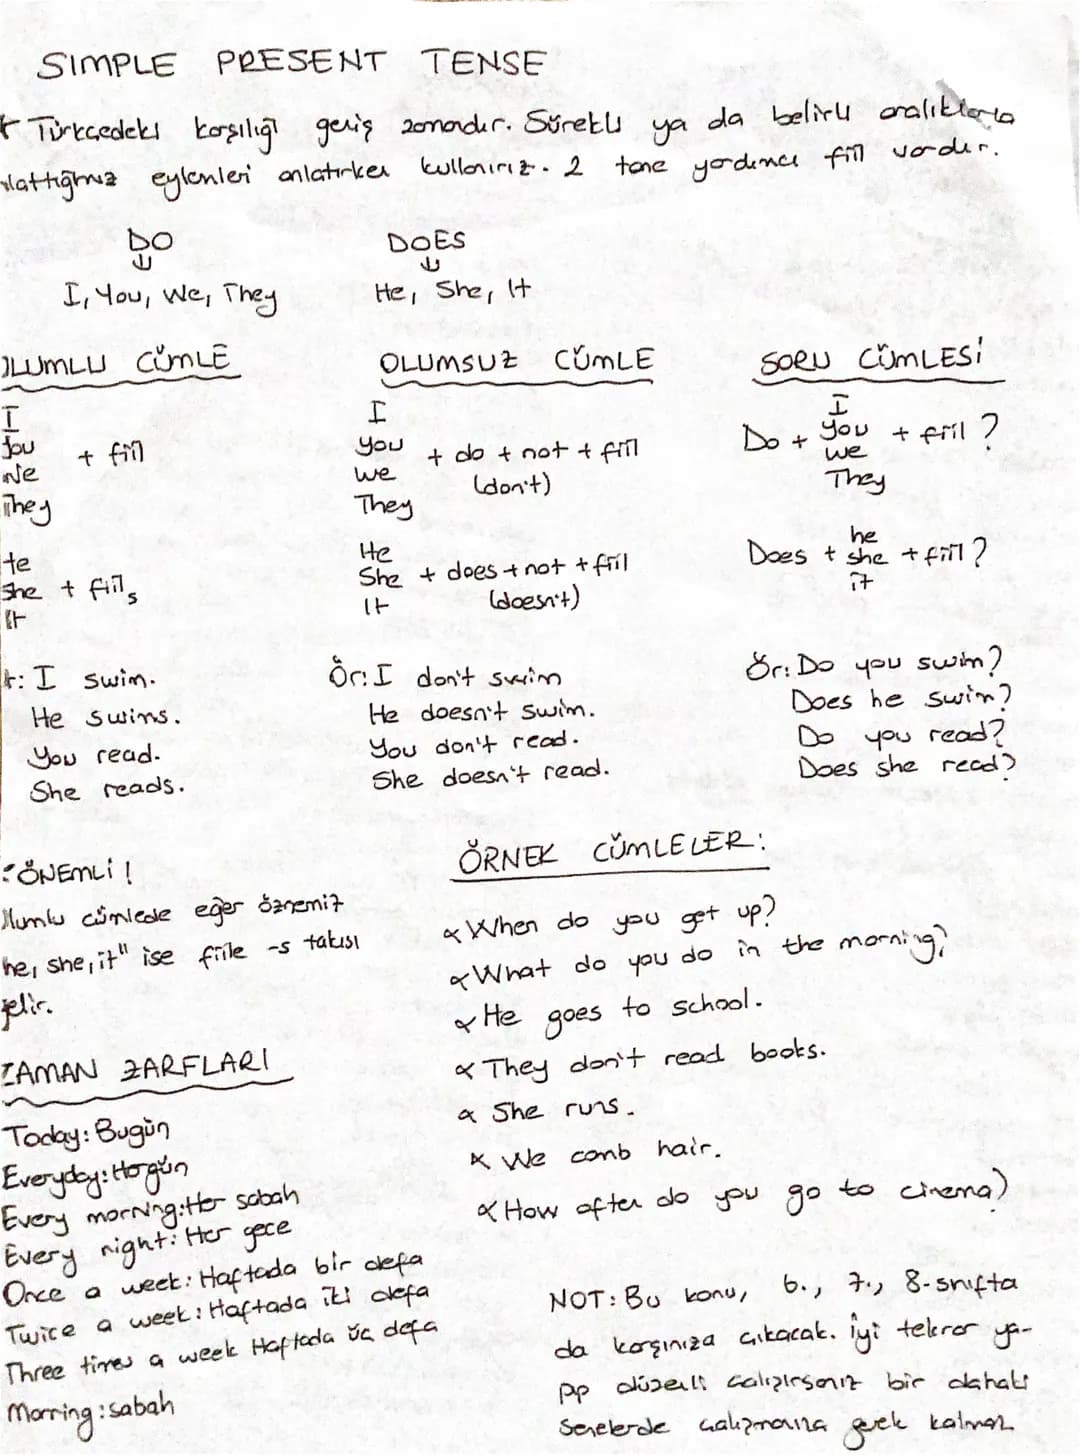 SIMPLE PRESENT TENSE
Türkçedeki karşılığı geniş zamandır. Sürekli ya da belirli aralıklarla
eylemleri anlatırken kullanırız. 2 tane yardımcı fiil vardır.
DO DOES
I, You, We, They He, She, It
OLUMLU CÜMLE
I
You
We
They
+ fiil
He
She + fiil s
It
Ör: I swim.
He swims.
You read.
She reads.
OLUMSUZ CÜMLE
I
you
we
They
+ do + not + fiil
(don't)
He
She + does + not + fiil
It (doesn't)
Ör: I don't swim
He doesn't swim.
You don't read.
She doesn't read.
SORU CÜMLESİ
I
Do + you + fiil ?
we
They
he
Does + she + fiil ?
it
Ör: Do you swim?
Does he swim?
Do you read?
Does she read?
ÖNEMLİ !
Olumlu cümlede eğer öznemiz
he, she, it" ise fiile -s takısı
gelir.
ZAMAN ZARFLARI
Today: Bugün
Everyday: Hergün
Every morning: Her sabah
Every night: Her gece
Once a week: Haftada bir defa
Twice a week: Haftada iki defa
Three times a week Haftada üç defa
Morning: sabah
ÖRNEK CÜMLELER:
When do you get up?
What do you do in the morning?
He goes to school.
They don't read books.
She runs.
We comb hair.
How often do you go to cinema?
NOT: Bu konu, 6., 7., 8. sınıfta
da karşınıza çıkacak. İyi tekrar ya-
pıp düzenli çalışırsanız bir dahaki
senelerde çalışmanıza gerek kalmaz